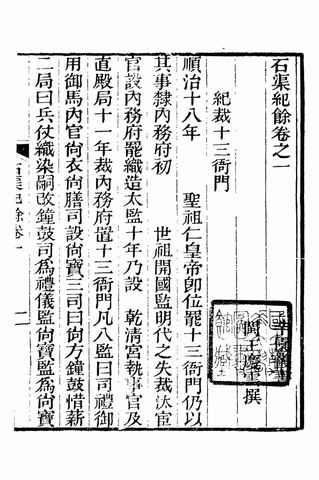 石渠紀餘卷之一
閩王慶雲撰
紀裁十三衙門
順治十八年　聖祖仁皇帝卽位罷十三衙門仍以
其事隸內務府初　世祖開國監明代之失裁汰宦
官設內務府罷織造太監十年乃設　乾清宮執事官及
直殿局十一年裁內務府置十三衙門凡八監曰司禮御
用御馬內官尙衣尙膳司設尙寶三司曰尙方鐘鼓惜薪
二局曰兵仗織染嗣改鐘鼓司爲禮儀監尙寶監爲尙寶
石渠紀餘卷一